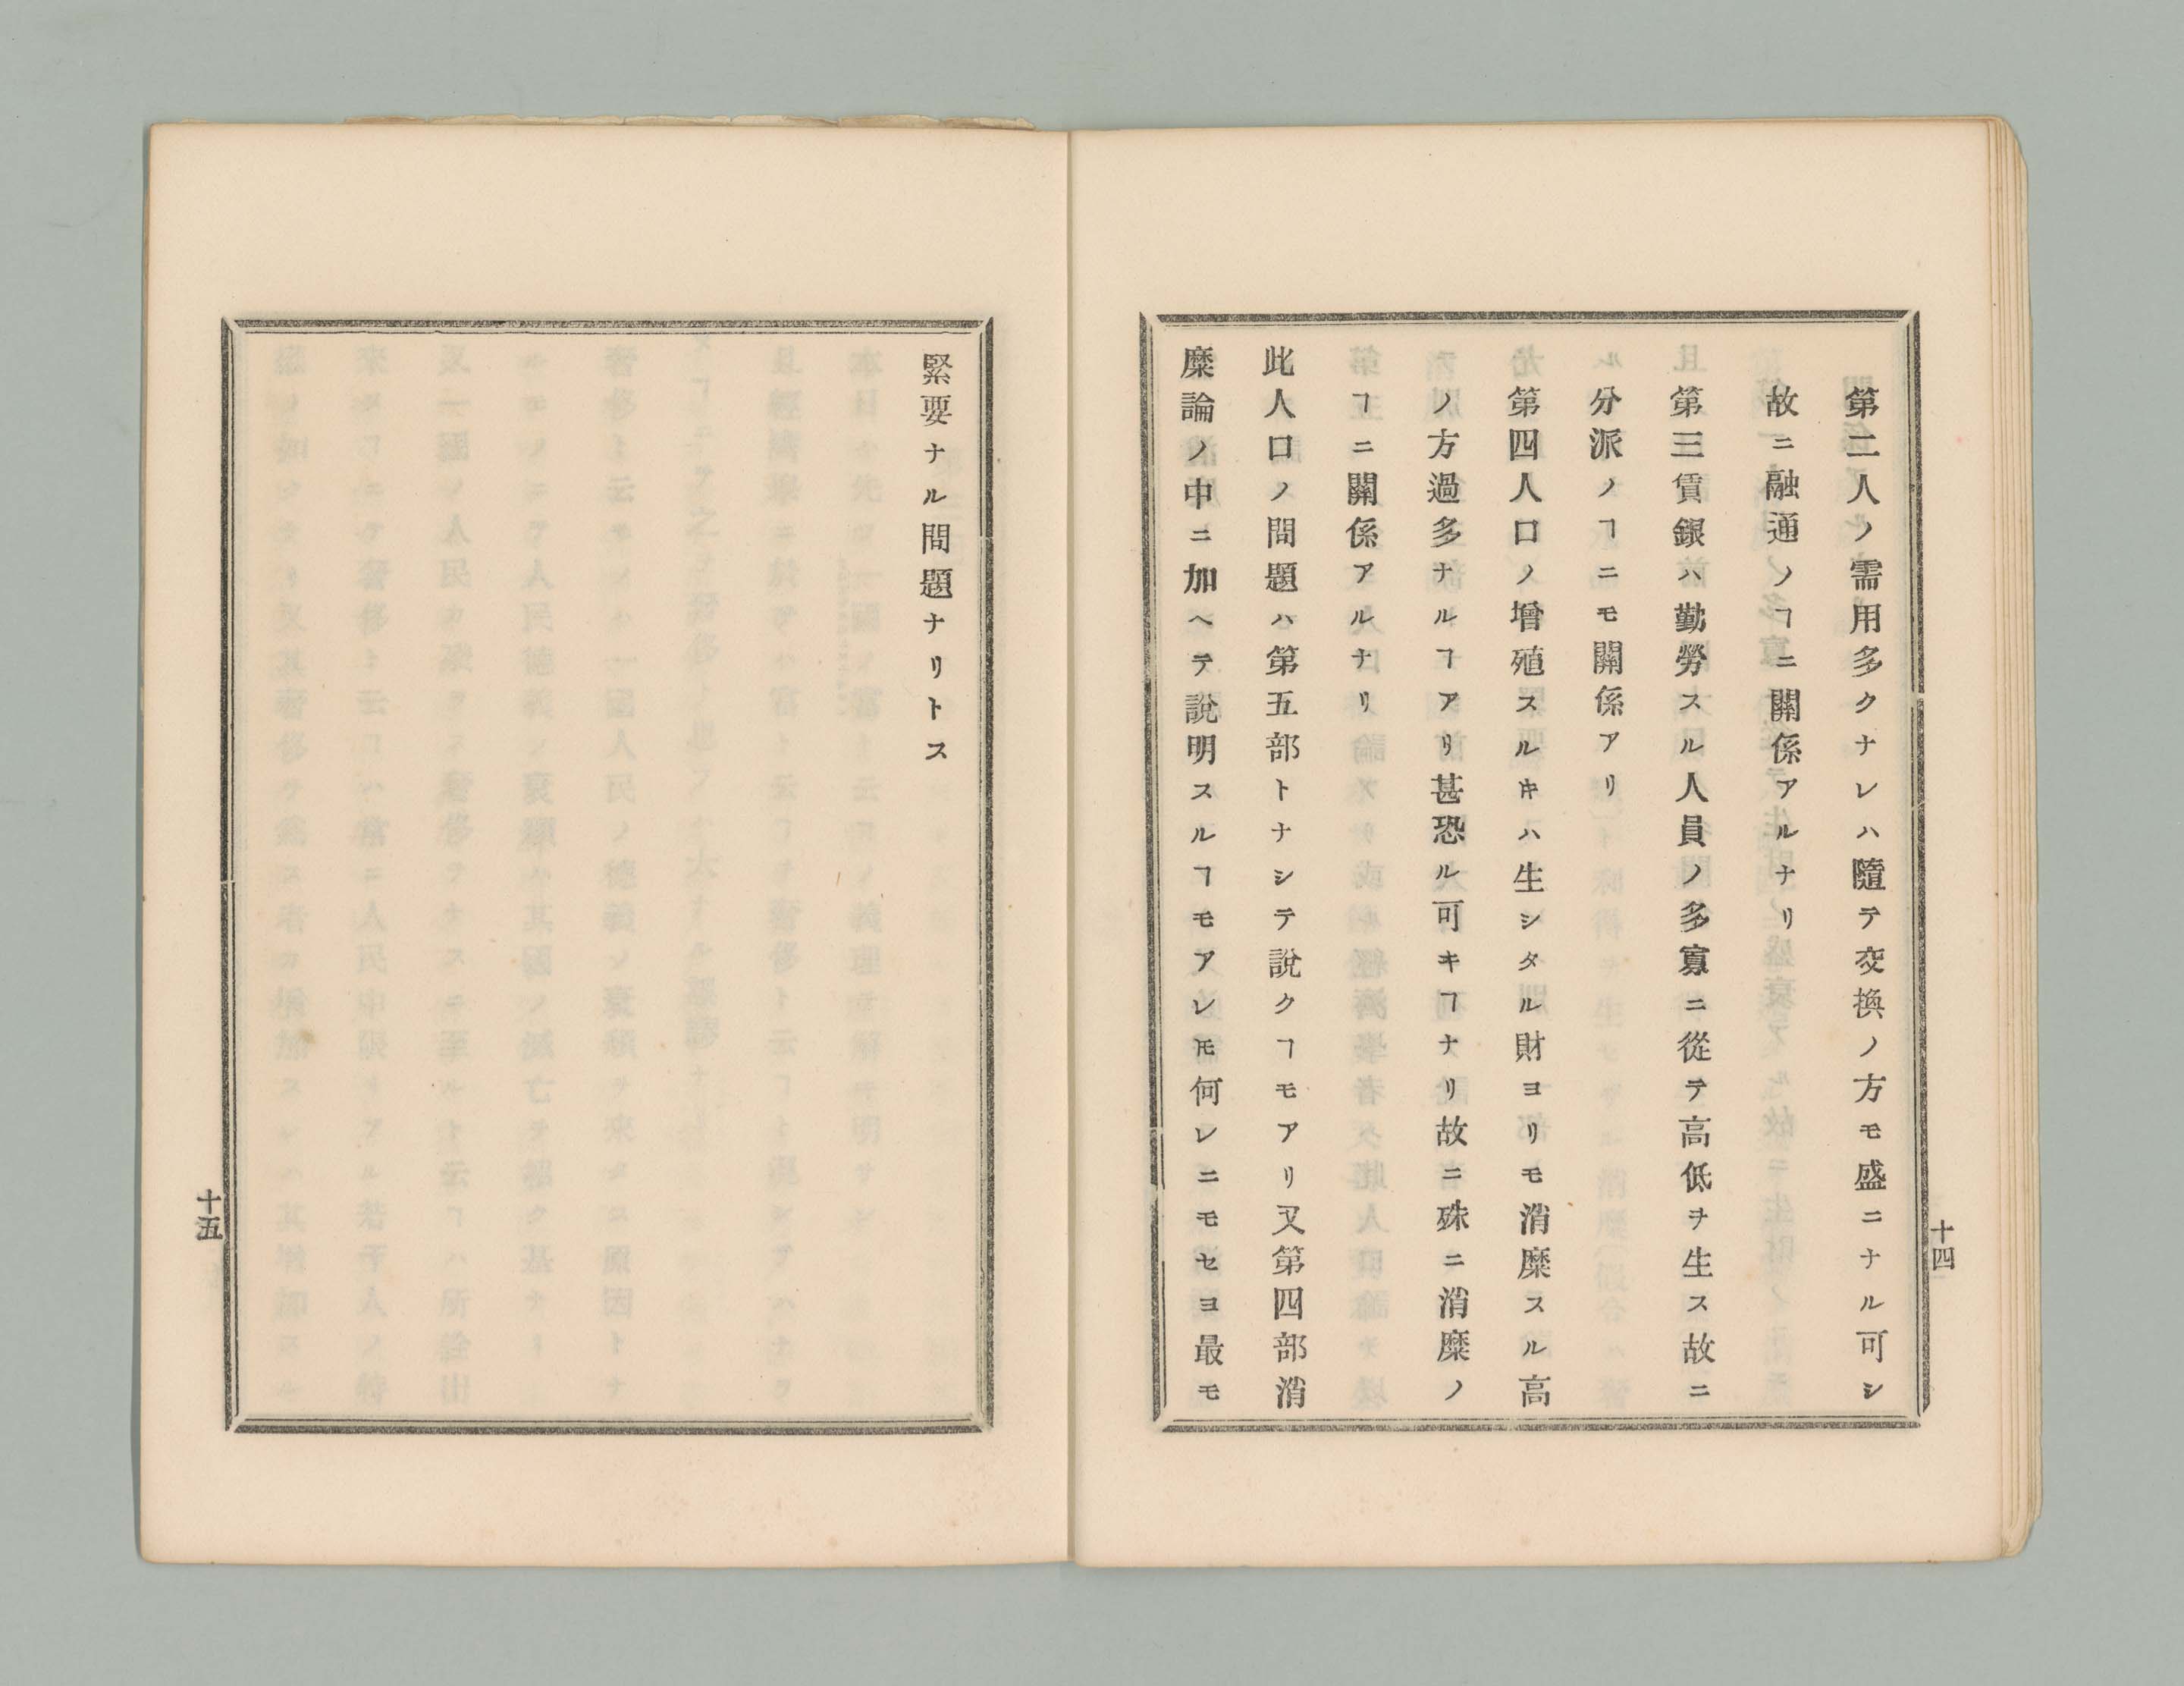 第二人ノ需用多クナレハ隨テ交換ノ方モ盛ニナル可シ
故ニ融通ノヿニ關係アルナリ
第三賃銀ハ勤勞スル人員ノ多寡ニ從テ高低ヲ生ス故ニ
分派ノヿニモ關係アリ
第四人口ノ增殖スルキハ生シタル財ヨリモ消糜スル高
ノ方過多ナルヿアリ甚恐ル可キヿナリ故ニ殊ニ消糜ノ
ヿニ關係アルナリ
此人口ノ問題ハ第五部トナシテ說クヿモアリ又第四部消
糜論ノ中ニ加ヘテ說明スルヿモアレ𪜈何レニモセヨ最モ
十四
緊要ナル問題ナリトス
十五